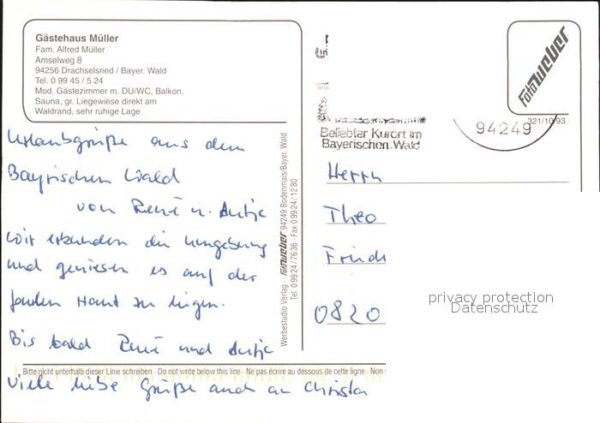 Gästehaus Müller
Fam. Alfred Müller
Amselweg 8
94256 Drachselsried / Bayer. Wald
Tel. 0 99 45 / 5 24
Mod. Gästezimmer m. DU/WC, Balkon,
Sauna, gr. Liegewiese direkt am
Waldrand, sehr ruhige Lage
Urlaubsgrüße aus dem
Bayrischen Wald
von René u. Antje
Wir erkunden die Umgebung
und geniesen es auf der
faulen Haut zu liegen.
Bis bald René und Antje
Bitte nicht unterhalb dieser Linie schreiben · Do not write below this line · Ne pas écrire au dessous de cette ligne · Non
Viele liebe Grüße auch an Christa
Werbestudio Verlag Foto weber 94249 Bodenmais/Bayer. Wald
Tel. 0 99 24 / 76 36 · Fax 0 99 24 / 12 80
Foto weber
321/10/93
Beliebter Kurort im
Bayerischen Wald
94249
Herrn
Theo
0820
privacy protection
Datenschutz